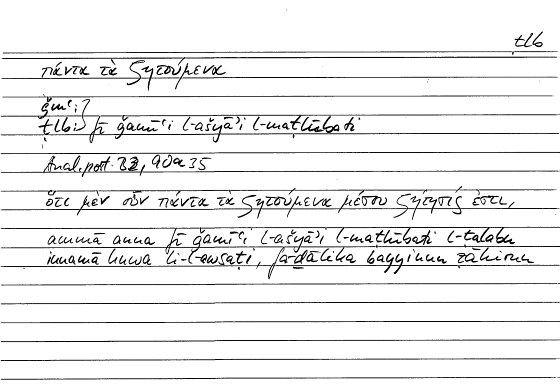 ṭlb
πάντα τὰ ζητούμενα
ǧmʿ:
ṭlb: fī ǧamīʿi l-ašyāʾi l-maṭlūbati
Anal. post. B3, 90a35
ὅτι μὲν οὖν πάντα τὰ ζητούμενα μέσου ζήτησίς ἐστι,
ammā anna fī ǧamīʿi l-ašyāʾi l-maṭlūbati l-ṭalabu
innamā huwa li-l-awsaṭi, fa-ḏālika bayyinun ẓāhirun